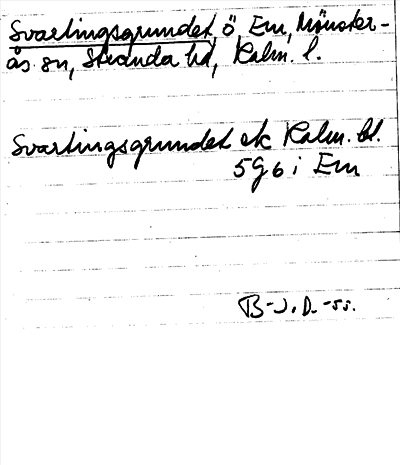 Svartingsgrundet, ö, Em, Mönster-
ås sn, Stranda hd, Kalm. l.
Svartingsgrundet ek Kalm. bl.
5g6 i Em
B-J. D.-55.